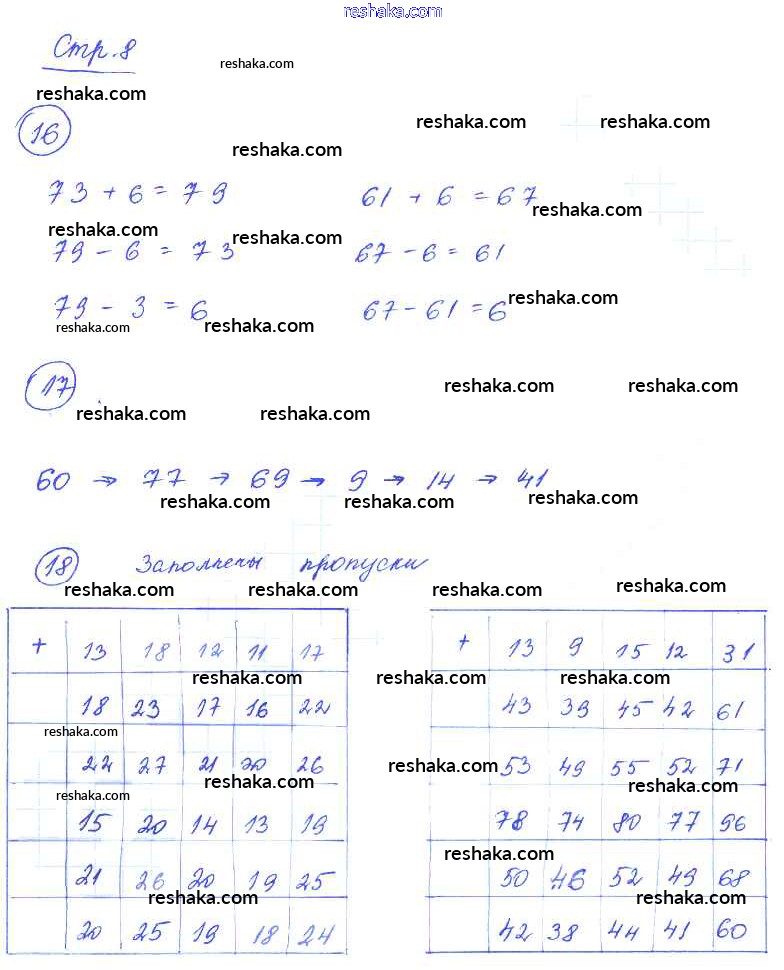 reshaka.com
Стр. 8
reshaka.com
reshaka.com
reshaka.com reshaka.com
16
reshaka.com
73 + 6 = 79 61 + 6 = 67
reshaka.com
reshaka.com reshaka.com
79 - 6 = 73 67 - 6 = 61
79 - 3 = 6 67 - 61 = 6
reshaka.com
reshaka.com reshaka.com
17
reshaka.com reshaka.com
reshaka.com reshaka.com
60 → 77 → 69 → 9 → 14 → 41
reshaka.com reshaka.com reshaka.com
18 Заполнены пропуски
reshaka.com reshaka.com reshaka.com reshaka.com
+ 13 18 12 11 17 + 13 9 15 12 31
reshaka.com reshaka.com reshaka.com
18 23 17 16 22 43 39 45 42 61
reshaka.com
22 27 21 20 26 53 49 55 52 71
reshaka.com reshaka.com reshaka.com
reshaka.com
15 20 14 13 19 78 74 80 77 96
reshaka.com
21 26 20 19 25 50 46 52 49 68
reshaka.com reshaka.com
20 25 19 18 24 42 38 44 41 60